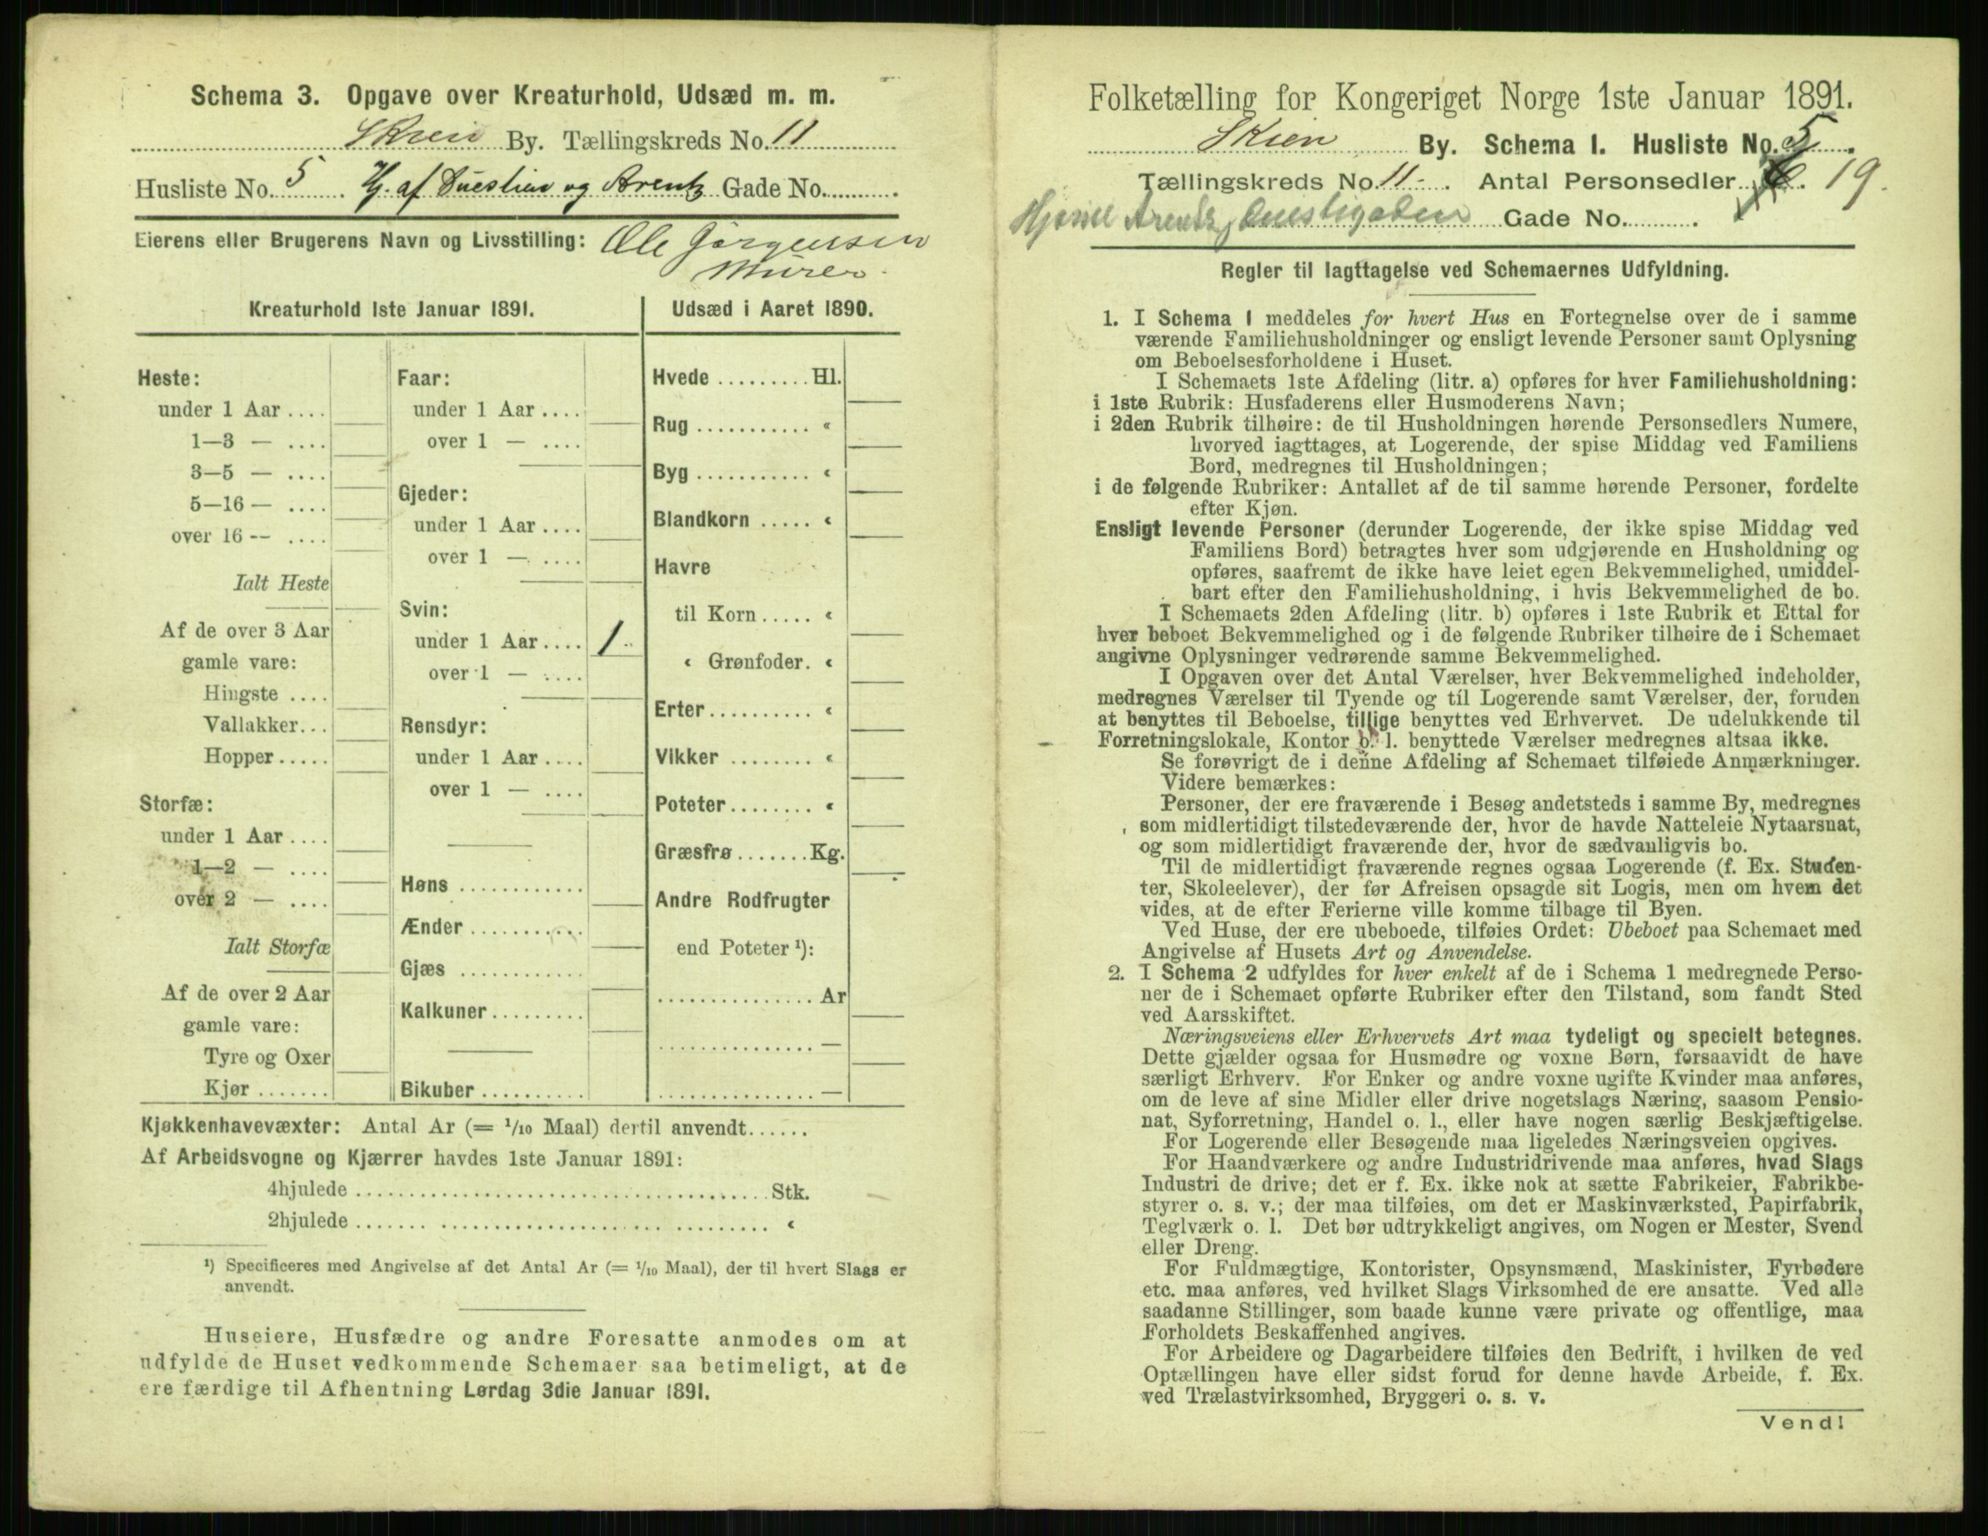 Schema 3. Opgave over Kreaturhold, Udsæd m. m.
Skien By. Tællingskreds No. 11
Husliste No. 5 Hj. af Duestien og Arentz Gade No.
Eierens eller Brugerens Navn og Livsstilling: Ole Jørgensen
Murer.
Kreaturhold 1ste Januar 1891.
Heste:
under 1 Aar ....
1—3 — ....
3—5 — ....
5—16 — ....
over 16 -- ....
Ialt Heste
Af de over 3 Aar
gamle vare:
Hingste ....
Vallakker...
Hopper.....
Storfæ:
under 1 Aar ....
1—2 — ....
over 2 — ....
Ialt Storfæ
Af de over 2 Aar
gamle vare:
Tyre og Oxer
Kjør .......
Faar:
under 1 Aar ....
over 1 — ....
Gjeder:
under 1 Aar ....
over 1 — ....
Svin:
under 1 Aar .... 1
over 1 — ....
Rensdyr:
under 1 Aar ....
over 1 — ....
Høns ............
Ænder ...........
Gjæs ............
Kalkuner.........
Bikuber..........
Udsæd i Aaret 1890.
Hvede .........Hl.
Rug ........... «
Byg ........... «
Blandkorn ..... «
Havre
til Korn..... «
« Grønfoder. «
Erter.......... «
Vikker ........ «
Poteter........ «
Græsfrø .......Kg.
Andre Rodfrugter
end Poteter ¹):
............... Ar
............... —
............... —
Kjøkkenhavevæxter: Antal Ar (= 1/10 Maal) dertil anvendt......
Af Arbeidsvogne og Kjærrer havdes 1ste Januar 1891:
4hjulede ..................................... Stk.
2hjulede ..................................... «
¹) Specificeres med Angivelse af det Antal Ar (= 1/10 Maal), der til hvert Slags er
anvendt.
Huseiere, Husfædre og andre Foresatte anmodes om at
udfylde de Huset vedkommende Schemaer saa betimeligt, at de
ere færdige til Afhentning Lørdag 3die Januar 1891.
Folketælling for Kongeriget Norge 1ste Januar 1891.
Skien By. Schema I. Husliste No. 5.
Tællingskreds No. 11. Antal Personsedler 19.
Hjørnet Arentz Duestigaden Gade No.
Regler til Iagttagelse ved Schemaernes Udfyldning.
1. I Schema 1 meddeles for hvert Hus en Fortegnelse over de i samme
værende Familiehusholdninger og ensligt levende Personer samt Oplysning
om Beboelsesforholdene i Huset.
I Schemaets 1ste Afdeling (litr. a) opføres for hver Familiehusholdning:
i 1ste Rubrik: Husfaderens eller Husmoderens Navn;
i 2den Rubrik tilhøire: de til Husholdningen hørende Personsedlers Numere,
hvorved iagttages, at Logerende, der spise Middag ved Familiens
Bord, medregnes til Husholdningen;
i de følgende Rubriker: Antallet af de til samme hørende Personer, fordelte
efter Kjøn.
Ensligt levende Personer (derunder Logerende, der ikke spise Middag ved
Familiens Bord) betragtes hver som udgjørende en Husholdning og
opføres, saafremt de ikke have leiet egen Bekvemmelighed, umiddel-
bart efter den Familiehusholdning, i hvis Bekvemmelighed de bo.
I Schemaets 2den Afdeling (litr. b) opføres i 1ste Rubrik et Ettal for
hver beboet Bekvemmelighed og i de følgende Rubriker tilhøire de i Schemaet
angivne Oplysninger vedrørende samme Bekvemmelighed.
I Opgaven over det Antal Værelser, hver Bekvemmelighed indeholder,
medregnes Værelser til Tyende og til Logerende samt Værelser, der, foruden
at benyttes til Beboelse, tillige benyttes ved Erhvervet. De udelukkende til
Forretningslokale, Kontor b. l. benyttede Værelser medregnes altsaa ikke.
Se forøvrigt de i denne Afdeling af Schemaet tilføiede Anmærkninger.
Videre bemærkes:
Personer, der ere fraværende i Besøg andetsteds i samme By, medregnes
som midlertidigt tilstedeværende der, hvor de havde Natteleie Nytaarsnat,
og som midlertidigt fraværende der, hvor de sædvanligvis bo.
Til de midlertidigt fraværende regnes ogsaa Logerende (f. Ex. Studen-
ter, Skoleelever), der før Afreisen opsagde sit Logis, men om hvem det
vides, at de efter Ferierne ville komme tilbage til Byen.
Ved Huse, der ere ubeboede, tilføies Ordet: Ubeboet paa Schemaet med
Angivelse af Husets Art og Anvendelse.
2. I Schema 2 udfyldes for hver enkelt af de i Schema 1 medregnede Perso-
ner de i Schemaet opførte Rubriker efter den Tilstand, som fandt Sted
ved Aarsskiftet.
Næringsveiens eller Erhvervets Art maa tydeligt og specielt betegnes.
Dette gjælder ogsaa for Husmødre og voxne Børn, forsaavidt de have
særligt Erhverv. For Enker og andre voxne ugifte Kvinder maa anføres,
om de leve af sine Midler eller drive nogetslags Næring, saasom Pensio-
nat, Syforretning, Handel o. l., eller have nogen særlig Beskjæftigelse.
For Logerende eller Besøgende maa ligeledes Næringsveien opgives.
For Haandværkere og andre Industridrivende maa anføres, hvad Slags
Industri de drive; det er f. Ex. ikke nok at sætte Fabrikeier, Fabrikbe-
styrer o. s. v.; der maa tilføies, om det er Maskinværksted, Papirfabrik,
Teglværk o. l. Det bør udtrykkeligt angives, om Nogen er Mester, Svend
eller Dreng.
For Fuldmægtige, Kontorister, Opsynsmænd, Maskinister, Fyrbødere
etc. maa anføres, ved hvilket Slags Virksomhed de ere ansatte. Ved alle
saadanne Stillinger, som baade kunne være private og offentlige, maa
Forholdets Beskaffenhed angives.
For Arbeidere og Dagarbeidere tilføies den Bedrift, i hvilken de ved
Optællingen have eller sidst forud for denne havde Arbeide, f. Ex.
ved Trælastvirksomhed, Bryggeri o. s. v.
Vend!